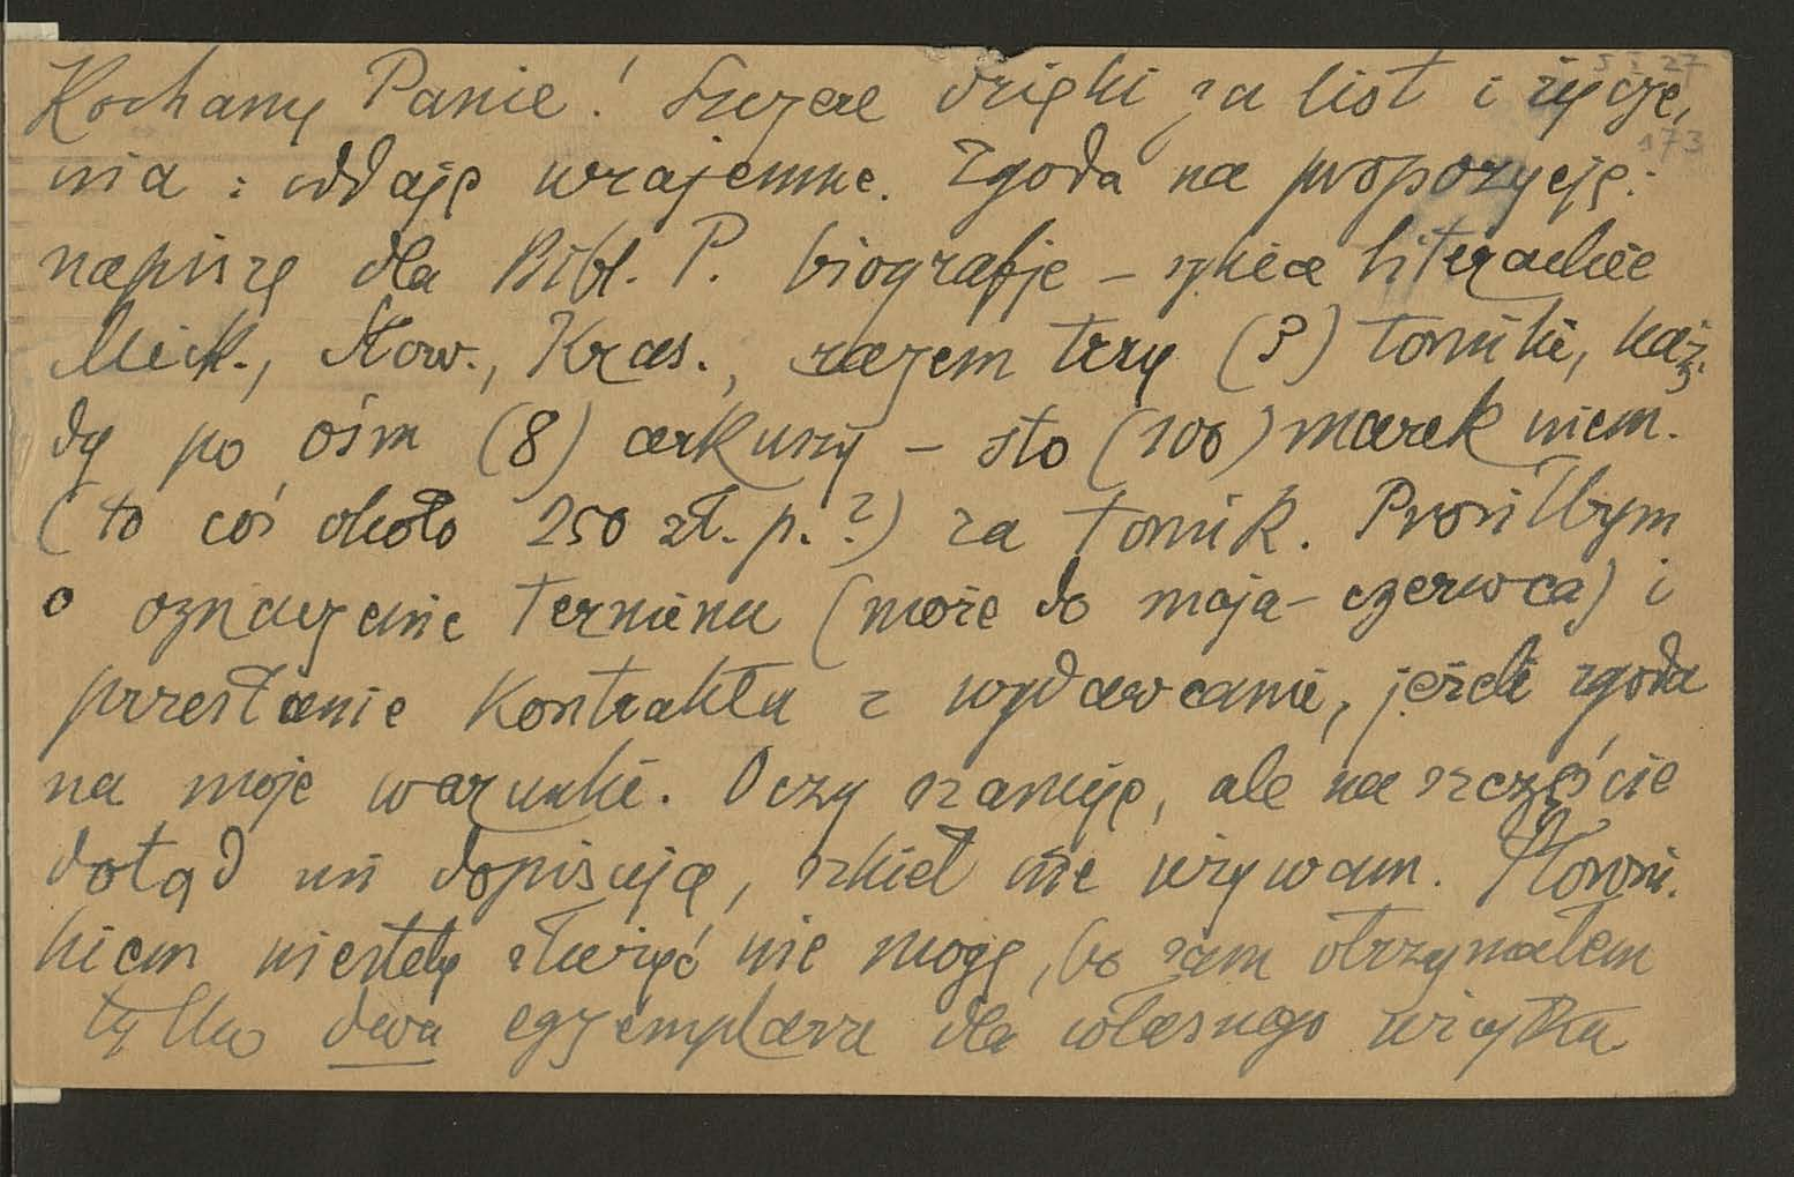 5 I 27
Kochany Panie! Szczere dzięki za list i życze,
173
nia : oddaję wzajemne. Zgoda na propozycję:
napiszę dla Bibl. P. biografje – szkice literackie
Mick., Słow., Kras., razem trzy (3) tomiki, każ,
dy po ośm (8) arkuszy – sto (100) marek niem.
(to coś około 250 zł. p.?) za tomik. Prosiłbym
o oznaczenie terminu (może do maja – czerwca) i
przesłanie kontraktu z wydawcami, jeżeli zgoda
na moje warunki. Oczy szanuję, ale na szczęście
dotąd mi dopisują, szkieł nie używam. Słowni.
kiem niestety służyć nie mogę, bo sam otrzymałem
tylko dwa egzemplarze dla własnego użytku